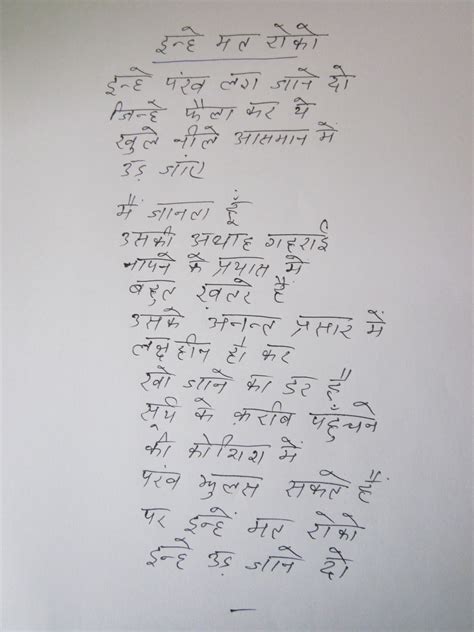 इन्हे मत रोको
इन्हे पंख लग जाने दो
जिन्हे फैला कर ये
खुले नीले आसमान में
उड़ जाएं
मैं जानता हूँ
उसकी अथाह गहराई
नापने के प्रयास में
बहुत खतरे हैं
उसके अनन्त प्रसार में
लक्षहीन हो कर
खो जाने का डर है
सूर्य के क़रीब पहुँचने
की कोशिश में
पंख झुलस सकते हैं
पर इन्हें मत रोको
इन्हे उड़ जाने दो